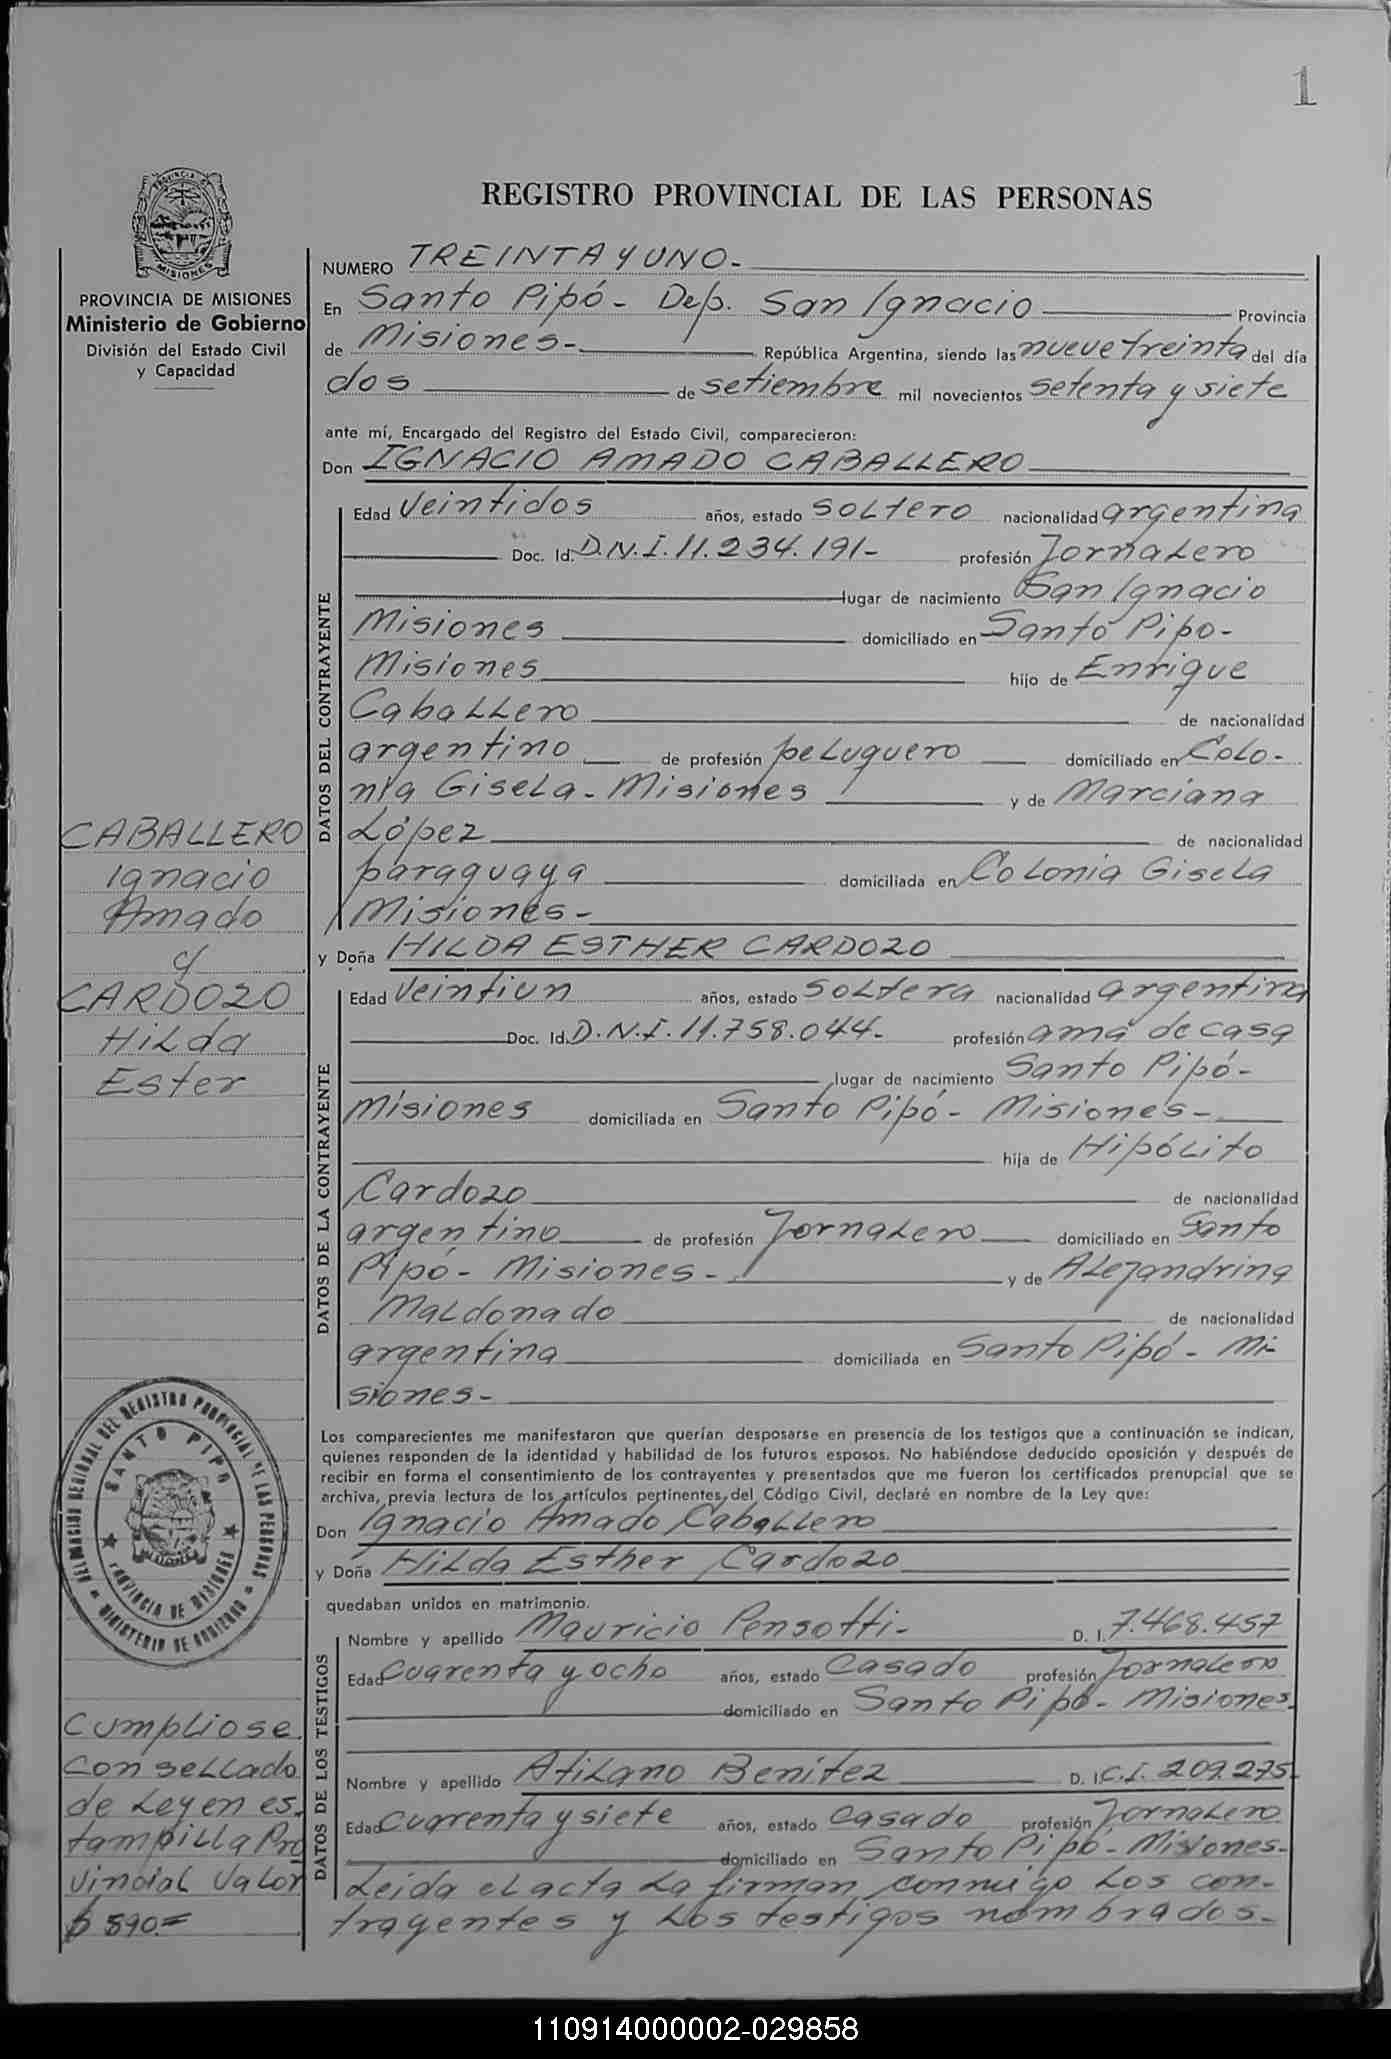 1
PROVINCIA DE
MISIONES
PROVINCIA DE MISIONES
Ministerio de Gobierno
División del Estado Civil
y Capacidad
REGISTRO PROVINCIAL DE LAS PERSONAS
NUMERO TREINTA Y UNO-
En Santo Pipó - Dep. San Ignacio Provincia
de Misiones- República Argentina, siendo las nueve treinta del día
dos de setiembre mil novecientos setenta y siete
ante mí, Encargado del Registro del Estado Civil, comparecieron:
Don IGNACIO AMADO CABALLERO
DATOS DEL CONTRAYENTE
Edad Veintidos años, estado soltero nacionalidad argentina
Doc. Id. D.N.I. 11.234.191- profesión Jornalero
lugar de nacimiento San Ignacio
Misiones domiciliado en Santo Pipo-
Misiones hijo de Enrique
Caballero de nacionalidad
argentino de profesión peluquero domiciliado en Colo-
nia Gisela - Misiones y de Marciana
López de nacionalidad
paraguaya domiciliada en Colonia Gisela
Misiones-
y Doña HILDA ESTHER CARDOZO
DATOS DE LA CONTRAYENTE
Edad Veintiun años, estado soltera nacionalidad argentina
Doc. Id. D.N.I. 11.758.044- profesión ama de casa
lugar de nacimiento Santo Pipó-
Misiones domiciliada en Santo Pipó - Misiones-
hija de Hipólito
Cardozo de nacionalidad
argentino de profesión Jornalero domiciliado en Santo
Pipó - Misiones - y de Alejandrina
Maldonado de nacionalidad
argentina domiciliada en Santo Pipó - Mi-
siones-
Los comparecientes me manifestaron que querían desposarse en presencia de los testigos que a continuación se indican,
quienes responden de la identidad y habilidad de los futuros esposos. No habiéndose deducido oposición y después de
recibir en forma el consentimiento de los contrayentes y presentados que me fueron los certificados prenupcial que se
archiva, previa lectura de los artículos pertinentes del Código Civil, declaré en nombre de la Ley que:
Don Ignacio Amado Caballero
y Doña Hilda Esther Cardozo
quedaban unidos en matrimonio.
DATOS DE LOS TESTIGOS
Nombre y apellido Mauricio Pensotti- D. I. 7.468.457
Edad cuarenta y ocho años, estado casado profesión Jornalero
domiciliado en Santo Pipó - Misiones-
Nombre y apellido Atilano Benítez D. I. C.I. 209.275-
Edad cuarenta y siete años, estado casado profesión Jornalero
domiciliado en Santo Pipó - Misiones-
Leida el acta la firman conmigo los con-
trayentes y los testigos nombrados-
CABALLERO
Ignacio
Amado
y
CARDOZO
Hilda
Ester
DELEGACION REGIONAL DEL REGISTRO PROVINCIAL DE LAS PERSONAS
MINISTERIO DE GOBIERNO
SANTO PIPO
PROVINCIA DE MISIONES
Cumpliose
con sellado
de Ley en es.
tampilla Pro
vincial Valor
$ 590=
110914000002-029858